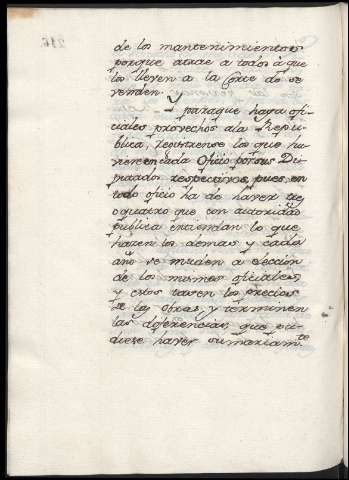 de los mantenimientos
porque atrae a todos à que
los lleven a la Corte do se
venden.
Y paraque haya ofi-
ciales provechos ala Repu-
blica, registrense los que hu-
viere en cada Oficio por sus Di-
putados respectivos, pues en
todo oficio ha de haver tres
o quatro que con autoridad
publica entiendan lo que
hazen los demas y cada
año se muden a eleccion
de los mismos oficiales,
y estos tasen los precios
de las obras, y terminen
las diferencias que pu-
diere haver sumariamte